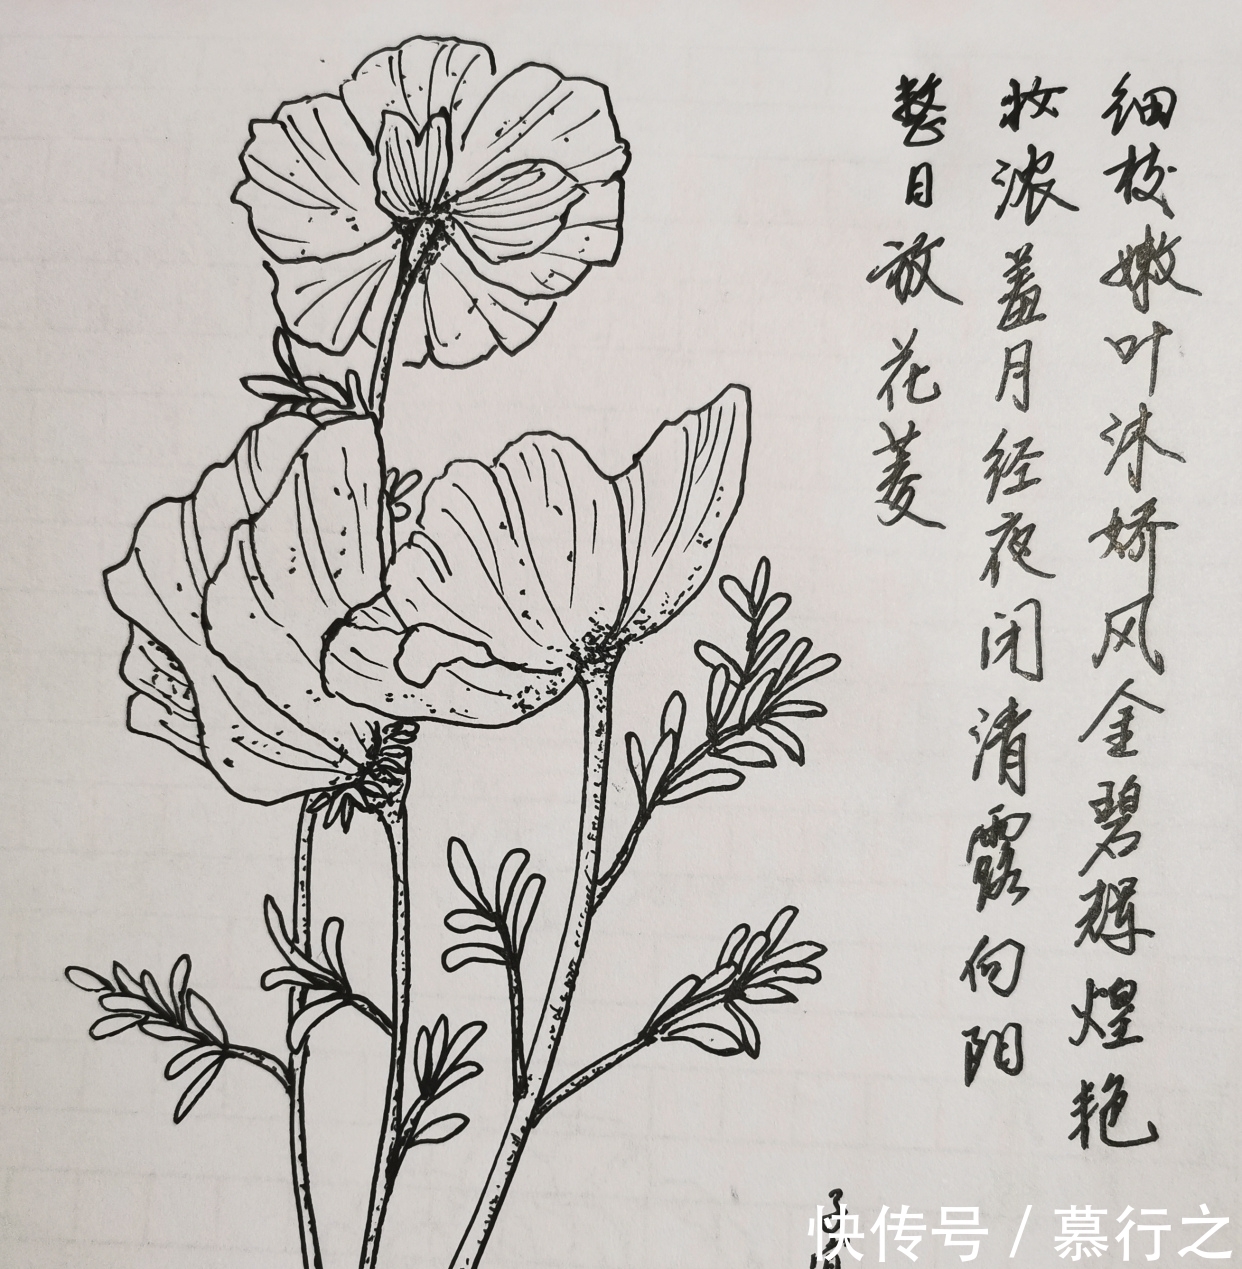 细枝嫩叶沐娇风金碧辉煌艳
妆浓羞月经夜闭清露向阳
整日放花菱
快传号 / 慕行之